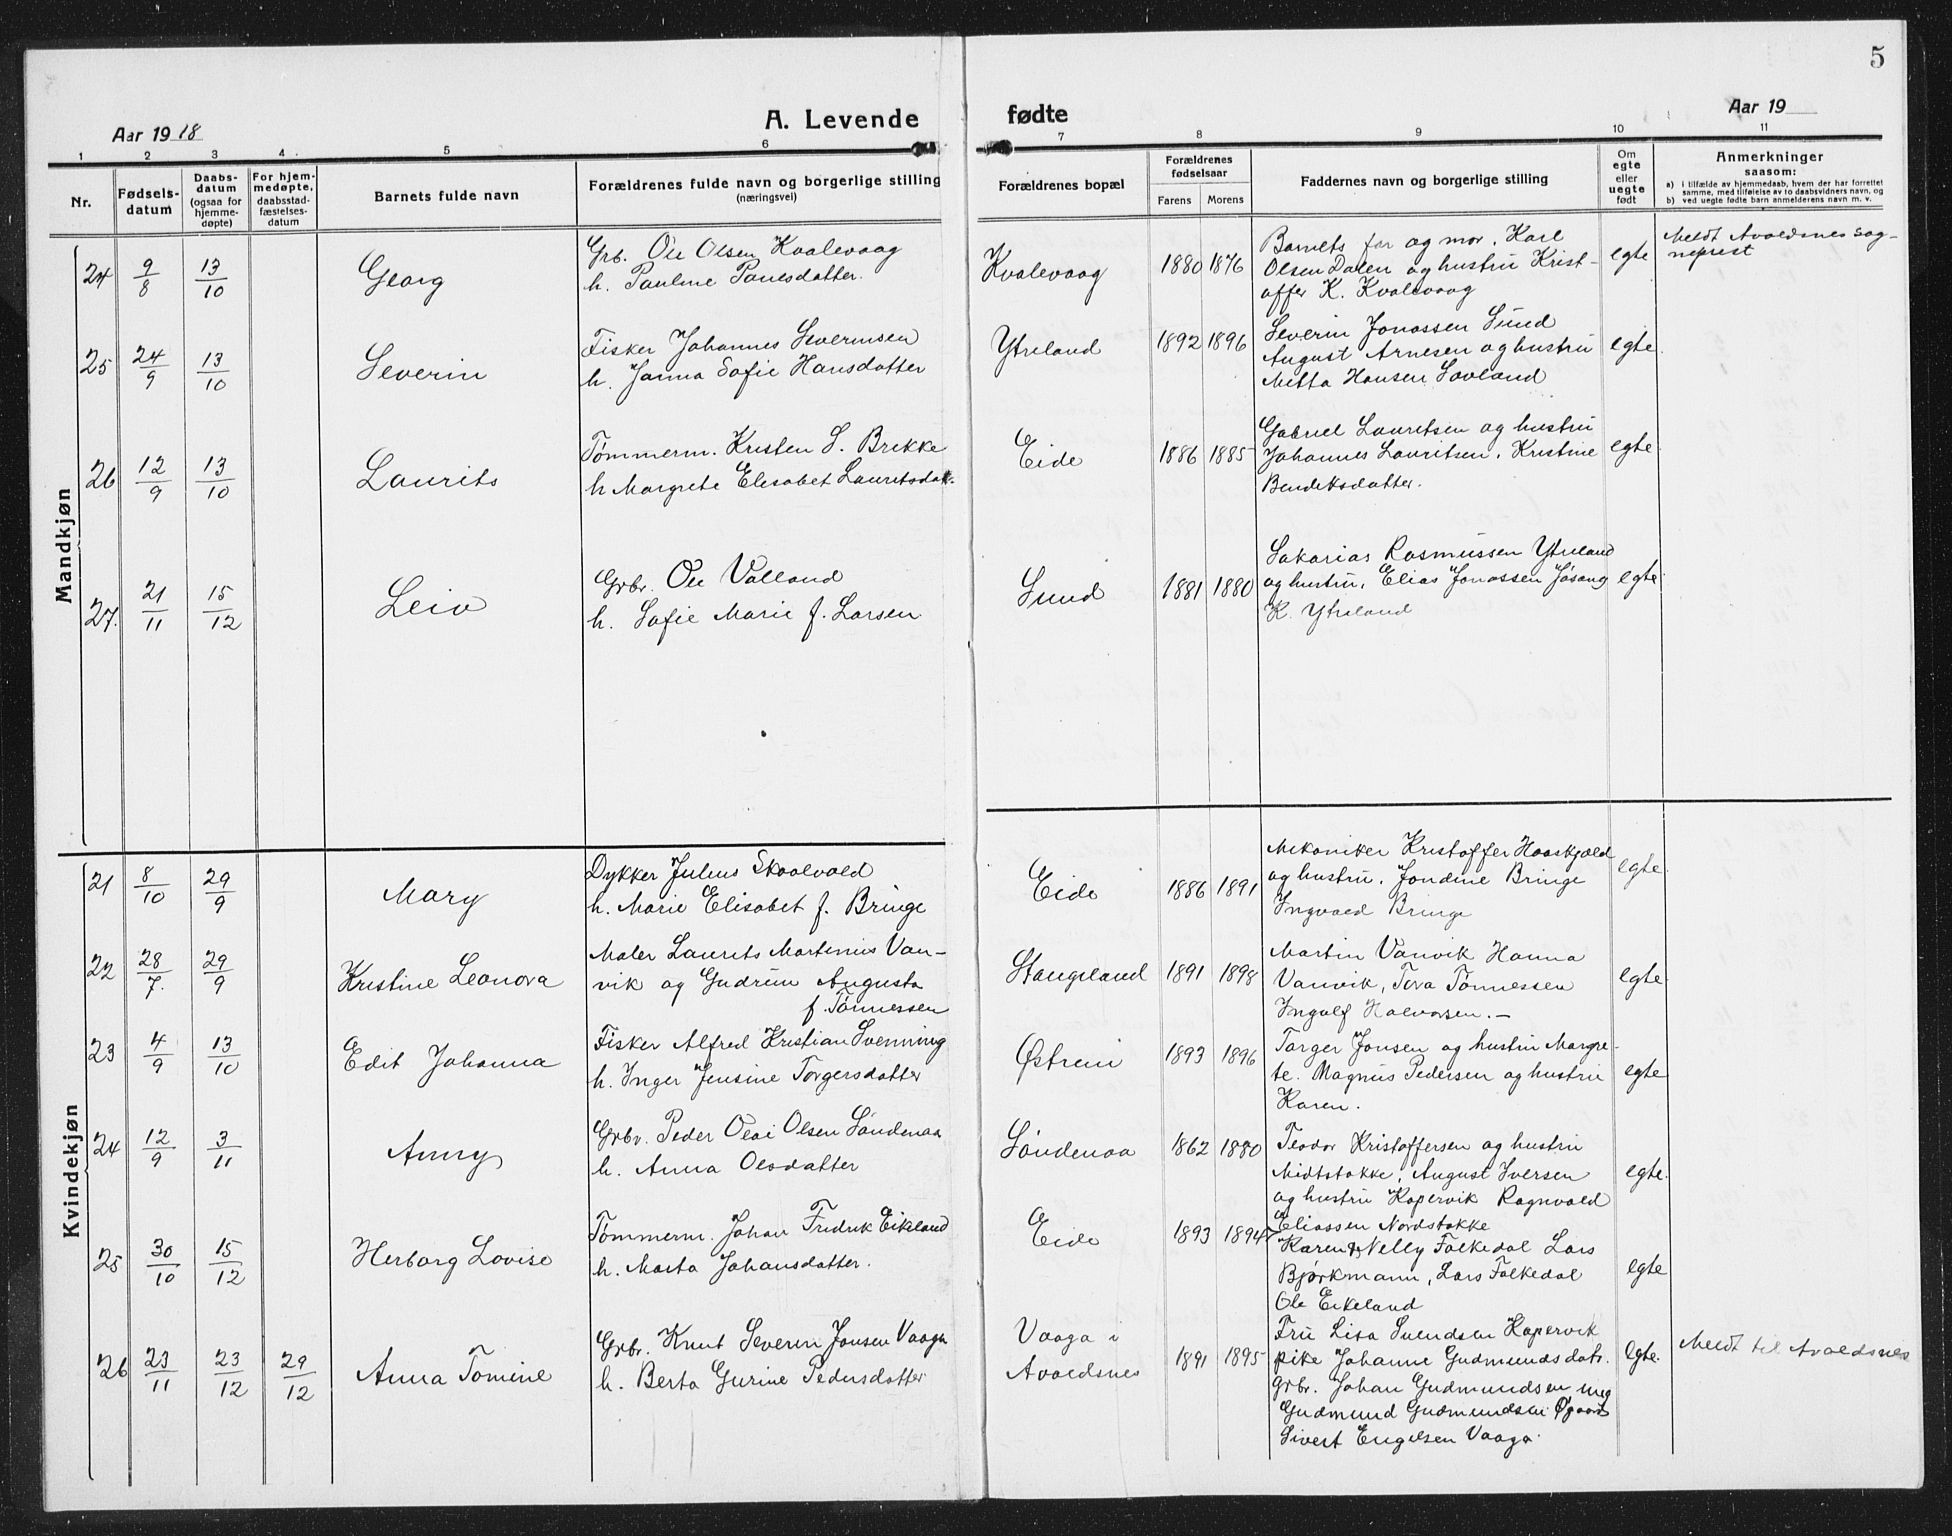 5
A. Levende fødte
Aar 1918
Aar 19
1 2 3 4 5 6 7 8 9 10 11
Nr.
Fødsels-
datum
Daabs-
datum
(ogsaa for
hjemme-
døpte)
For hjem-
medøpte,
daabsstad-
fæstelses-
datum
Barnets fulde navn
Forældrenes fulde navn og borgerlige stilling
(næringsvei)
Forældrenes bopæl
Forældrenes
fødselsaar
Farens Morens
Faddernes navn og borgerlige stilling
Om
egte
eller
uegte
født
Anmerkninger
saasom:
a) i tilfælde av hjemmedaab, hvem der har forrettet
samme, med tilføielse av to daabsvidners navn, og
b) ved uegte fødte barn anmelderens navn m. v.
Mandkjøn
24 9/8 13/10 Georg
Grb. Ole Olsen Kvalevaag
h. Pauline Paulsdatter.
Kvalevaag 1880 1876
Barnets far og mor, Karl
Olsen Dalen og hustru Krist-
offer K. Kvalevaag
egte
Meldt Avaldsnes sog-
neprest
25 24/9 13/10 Severin
Fisker Johannes Severinsen
h. Janna Sofie Hansdatter
Ytreland 1892 1896
Severin Jonassen Sund
August Arnesen og hustru
Metta Hansen Sovland
egte.
26 12/9 13/10 Laurits
Tømmerm. Kristen S. Brekke
h Margrete Elisabet Lauritsdatt.
Eide 1886 1885
Gabriel Lauritsen og hustru
Johannes Lauritsen, Kristine
Bendiksdatter.
egte
27. 21/11 15/12 Leiv
Grbr. Ole Valland
h. Sofie Marie f. Larsen
Sund 1881 1880
Sakarias Rasmussen Ytreland
og hustru, Elias Jonassen Jøsang
K. Ytreland
egte
Kvindekjøn
21 8/10 29/9 Mary
Dykker Julius Skaalvold
h. Marie Elisabet f. Bringe
Eide 1886 1891
Mekaniker Kristoffer Haaskjold
og hustru, Jondine Bringe
Ingvald Bringe
egte
22 28/7. 29/9 Kristine Leonora
Maler Laurits Martinius Van-
vik og Gudrun Augusta
f. Tønnessen
Stangeland 1891 1898
Martin Vanvik Hanna
Vanvik, Tora Tønnessen
Ingolf Halvorsen. –
egte
23 4/9 13/10 Edit Johanna
Fisker Alfred Kristian Svenning
h. Inger Jensine Torgersdatter
Østrem 1893 1896
Torger Jonsen og hustru Margre-
te. Magnus Pedersen og hustru
Karen.
egte
24 12/9 3/11 Anny
Grbr. Peder Olai Olsen Søndenaa
h. Anna Olsdatter
Søndenaa 1862 1880
Teodor Kristoffersen og hustru
Midtstokke, August Iversen
og hustru Kopervik Ragnvald
Eliassen Nordstokke
egte.
25 30/10 15/12 Herborg Lovise
Tømmerm. Johan Fredrik Eikeland
h. Marta Johansdatter.
Eide 1893 1894
Karen & Nelly Falkedal Lars
Bjørkmann, Lars Falkedal
Ole Eikeland
egte
26 23/11 23/12 29/12 Anna Tomine
Grbr. Knut Severin Jonsen Vaaga
h. Berta Gurine Pedersdatter
Vaaga i
Avaldsnes
1891 1895
Fru Lisa Svendsen Kopervik
pike Johanne Gudmundsdatr.
grbr. Johan Gudmundsen ung
Gudmund Gudmundsen Øgaard
Sivert Engelsen Vaaga.
egte.
Meldt til Avaldsnes